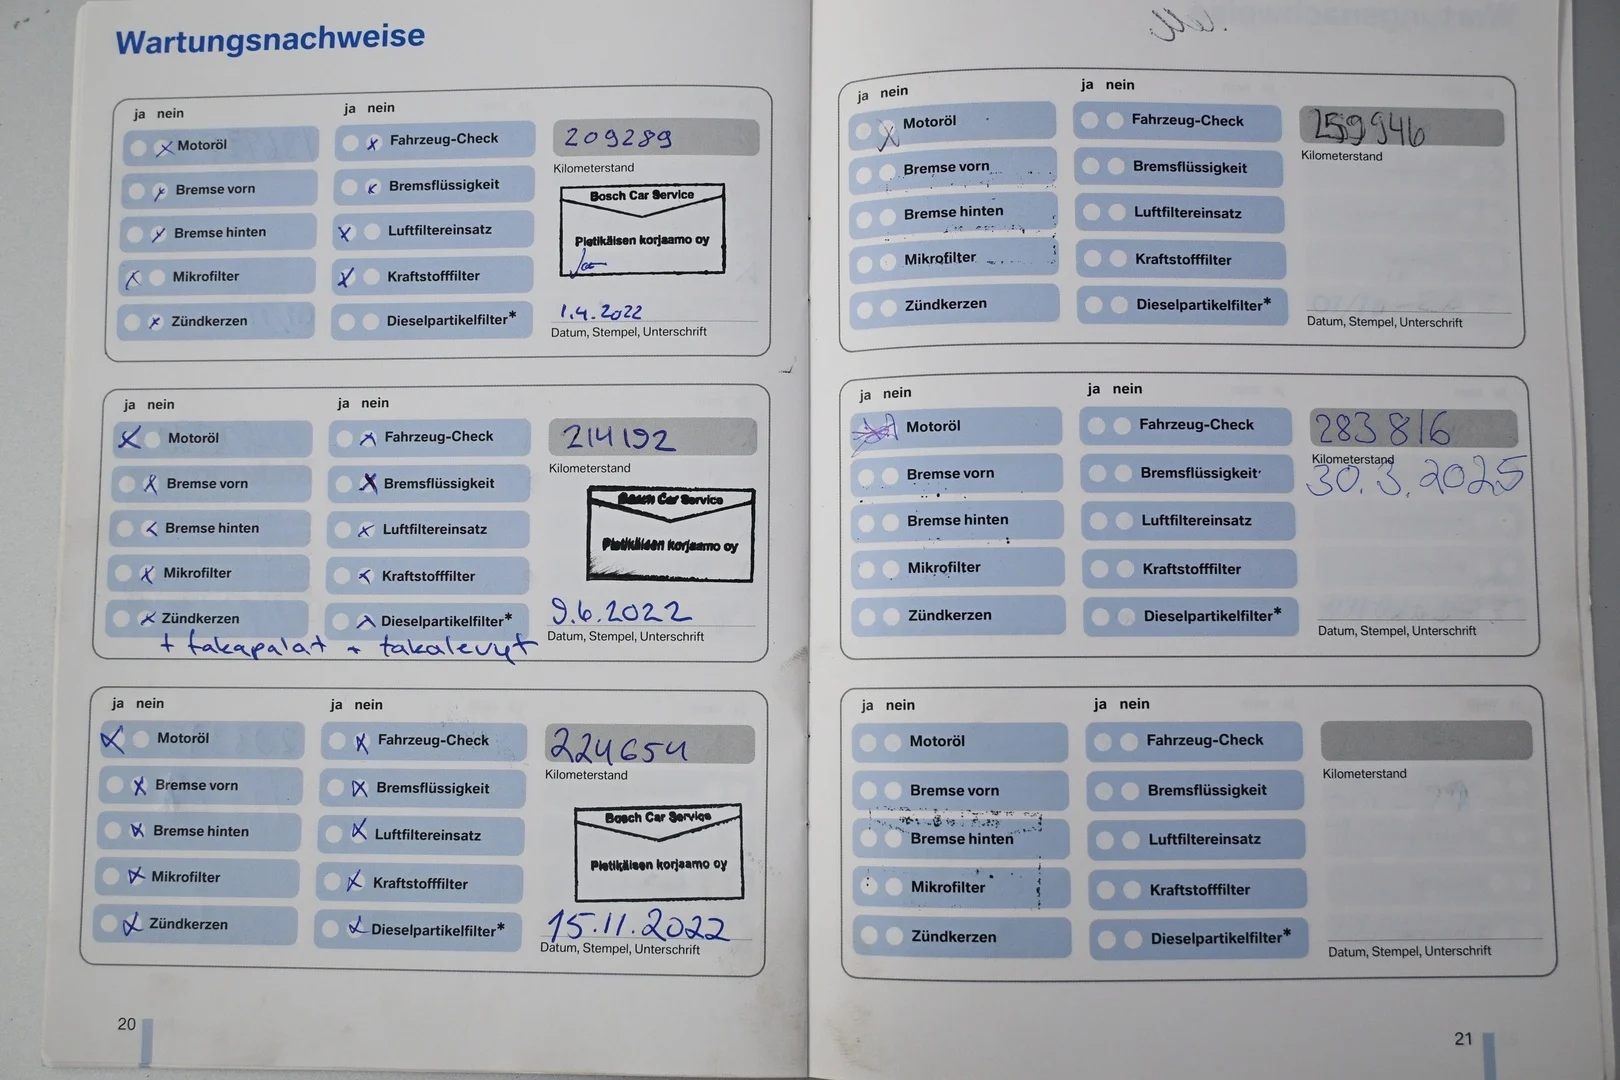 Wartungsnachweise
ja nein
ja nein
Motoröl
Fahrzeug-Check
209289
Bremse vorn
Bremsflüssigkeit
Kilometerstand
Bremse hinten
Luftfiltereinsatz
Bosch Car Service
Pietikäisen korjaamo oy
Mikrofilter
Kraftstofffilter
Zündkerzen
Dieselpartikelfilter*
1.4.2022
Datum, Stempel, Unterschrift
ja nein
ja nein
Motoröl
Fahrzeug-Check
214192
Bremse vorn
Bremsflüssigkeit
Kilometerstand
Bremse hinten
Luftfiltereinsatz
Bosch Car Service
Pietikäisen korjaamo oy
Mikrofilter
Kraftstofffilter
Zündkerzen
Dieselpartikelfilter*
9.6.2022
+ takapalat + takalevyt
Datum, Stempel, Unterschrift
ja nein
ja nein
Motoröl
Fahrzeug-Check
224654
Bremse vorn
Bremsflüssigkeit
Kilometerstand
Bremse hinten
Luftfiltereinsatz
Bosch Car Service
Pietikäisen korjaamo oy
Mikrofilter
Kraftstofffilter
Zündkerzen
Dieselpartikelfilter*
15.11.2022
Datum, Stempel, Unterschrift
20
ja nein
ja nein
Motoröl
Fahrzeug-Check
259946
Bremse vorn
Bremsflüssigkeit
Kilometerstand
Bremse hinten
Luftfiltereinsatz
Mikrofilter
Kraftstofffilter
Zündkerzen
Dieselpartikelfilter*
Datum, Stempel, Unterschrift
ja nein
ja nein
Motoröl
Fahrzeug-Check
283816
Bremse vorn
Bremsflüssigkeit
Kilometerstand
30.3.2025
Bremse hinten
Luftfiltereinsatz
Mikrofilter
Kraftstofffilter
Zündkerzen
Dieselpartikelfilter*
Datum, Stempel, Unterschrift
ja nein
ja nein
Motoröl
Fahrzeug-Check
Bremse vorn
Bremsflüssigkeit
Kilometerstand
Bremse hinten
Luftfiltereinsatz
Mikrofilter
Kraftstofffilter
Zündkerzen
Dieselpartikelfilter*
Datum, Stempel, Unterschrift
21